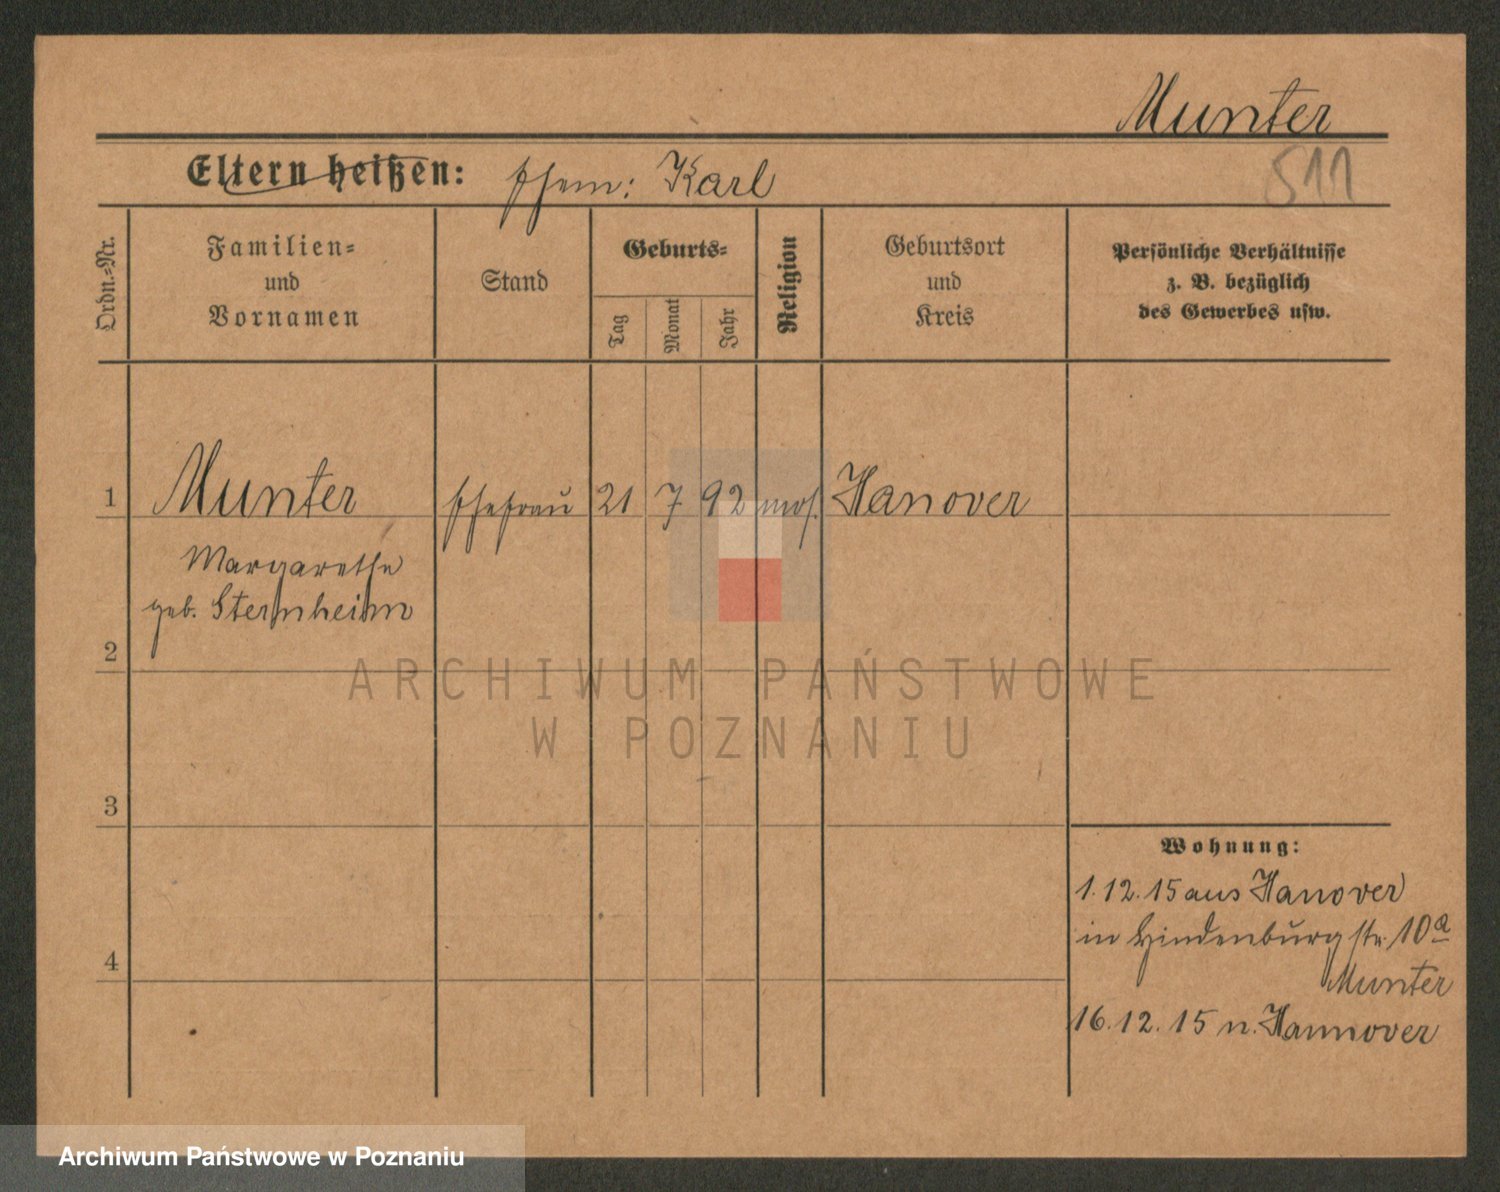 Munter
Eltern heißen: Ehem: Karl
511
Ordn.=Nr.
Familien=
und
Vornamen
Stand
Geburts=
Tag
Monat
Jahr
Religion
Geburtsort
und
Kreis
Persönliche Verhältnisse
z. B. bezüglich
des Gewerbes usw.
1 Munter Ehefrau 21 7 92 mos. Hanover
Margarethe
geb. Sternheim
2
ARCHIWUM PAŃSTWOWE
W POZNANIU
3
Wohnung:
1.12.15 aus Hanover
in Hindenburgstr. 10a
4
Munter
16.12.15 n. Hannover
Archiwum Państwowe w Poznaniu